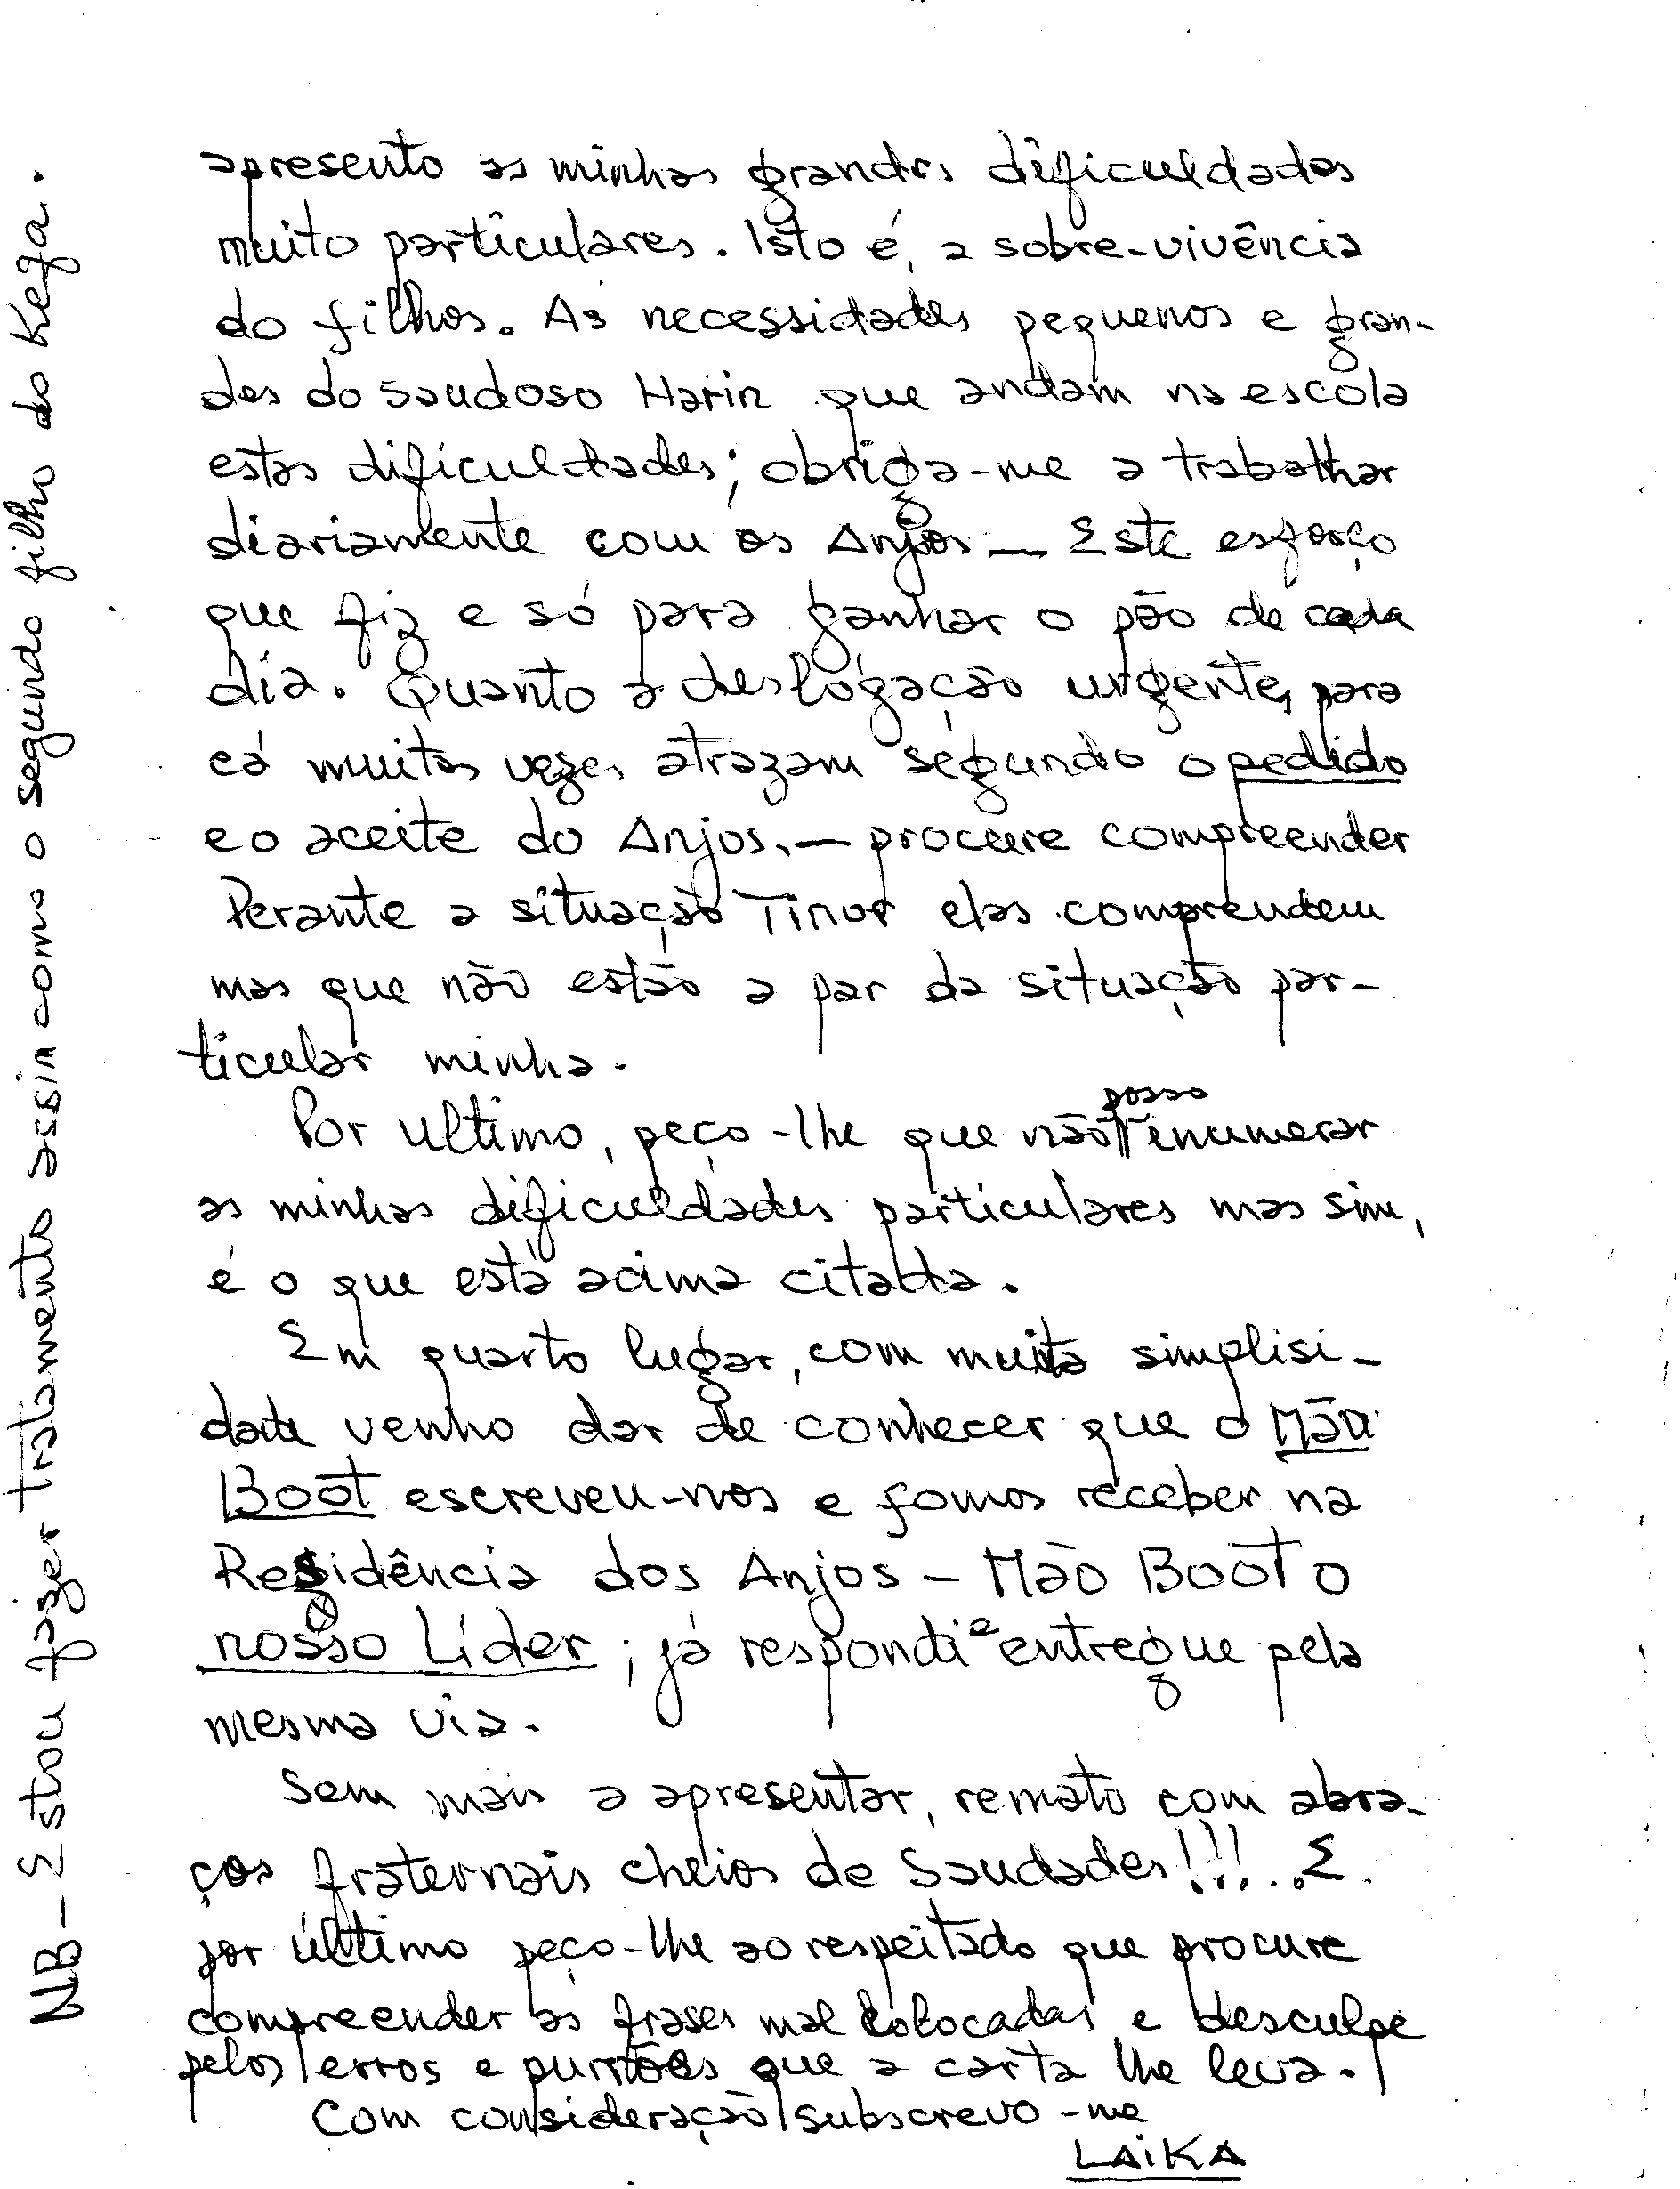 apresento as minhas grandes dificuldades
muito particulares. Isto é, a sobre-vivência
do filhos. As necessidades pequenos e gran-
des do saudoso Harin que andam na escola
estas dificuldades; obriga-me a trabalhar
diariamente com os Anjos — Este esforço
que fiz e só para ganhar o pão de cada
dia. Quanto a deslogação urgente, para
cá muitas vezes atrazam segundo o pedido
e o aceite do Anjos. — procure compreender
Perante a situação Timor elas comprendem
mas que não estão a par da situação par-
ticular minha.
Por ultimo, peço-lhe que não posso enumerar
as minhas dificuldades particulares mas sim,
é o que está acima citada.
Em quarto lugar, com muita simplisi-
dade venho dar de conhecer que o Mau
Boot escreveu-nos e fomos receber na
Residência dos Anjos - Mão Boot o
nosso Líder; já respondi e entregue pela
mesma via.
Sem mais a apresentar, remato com abra-
ços fraternais cheios de Saudades!!!... E
por último peço-lhe ao respeitado que procure
compreender as frases mal colocadas e desculpe
pelos erros e que a carta lhe leva.
Com consideração subscrevo-me
LAIKA
NB - Estou fazer tratamento assim como o segundo filho do Kega.